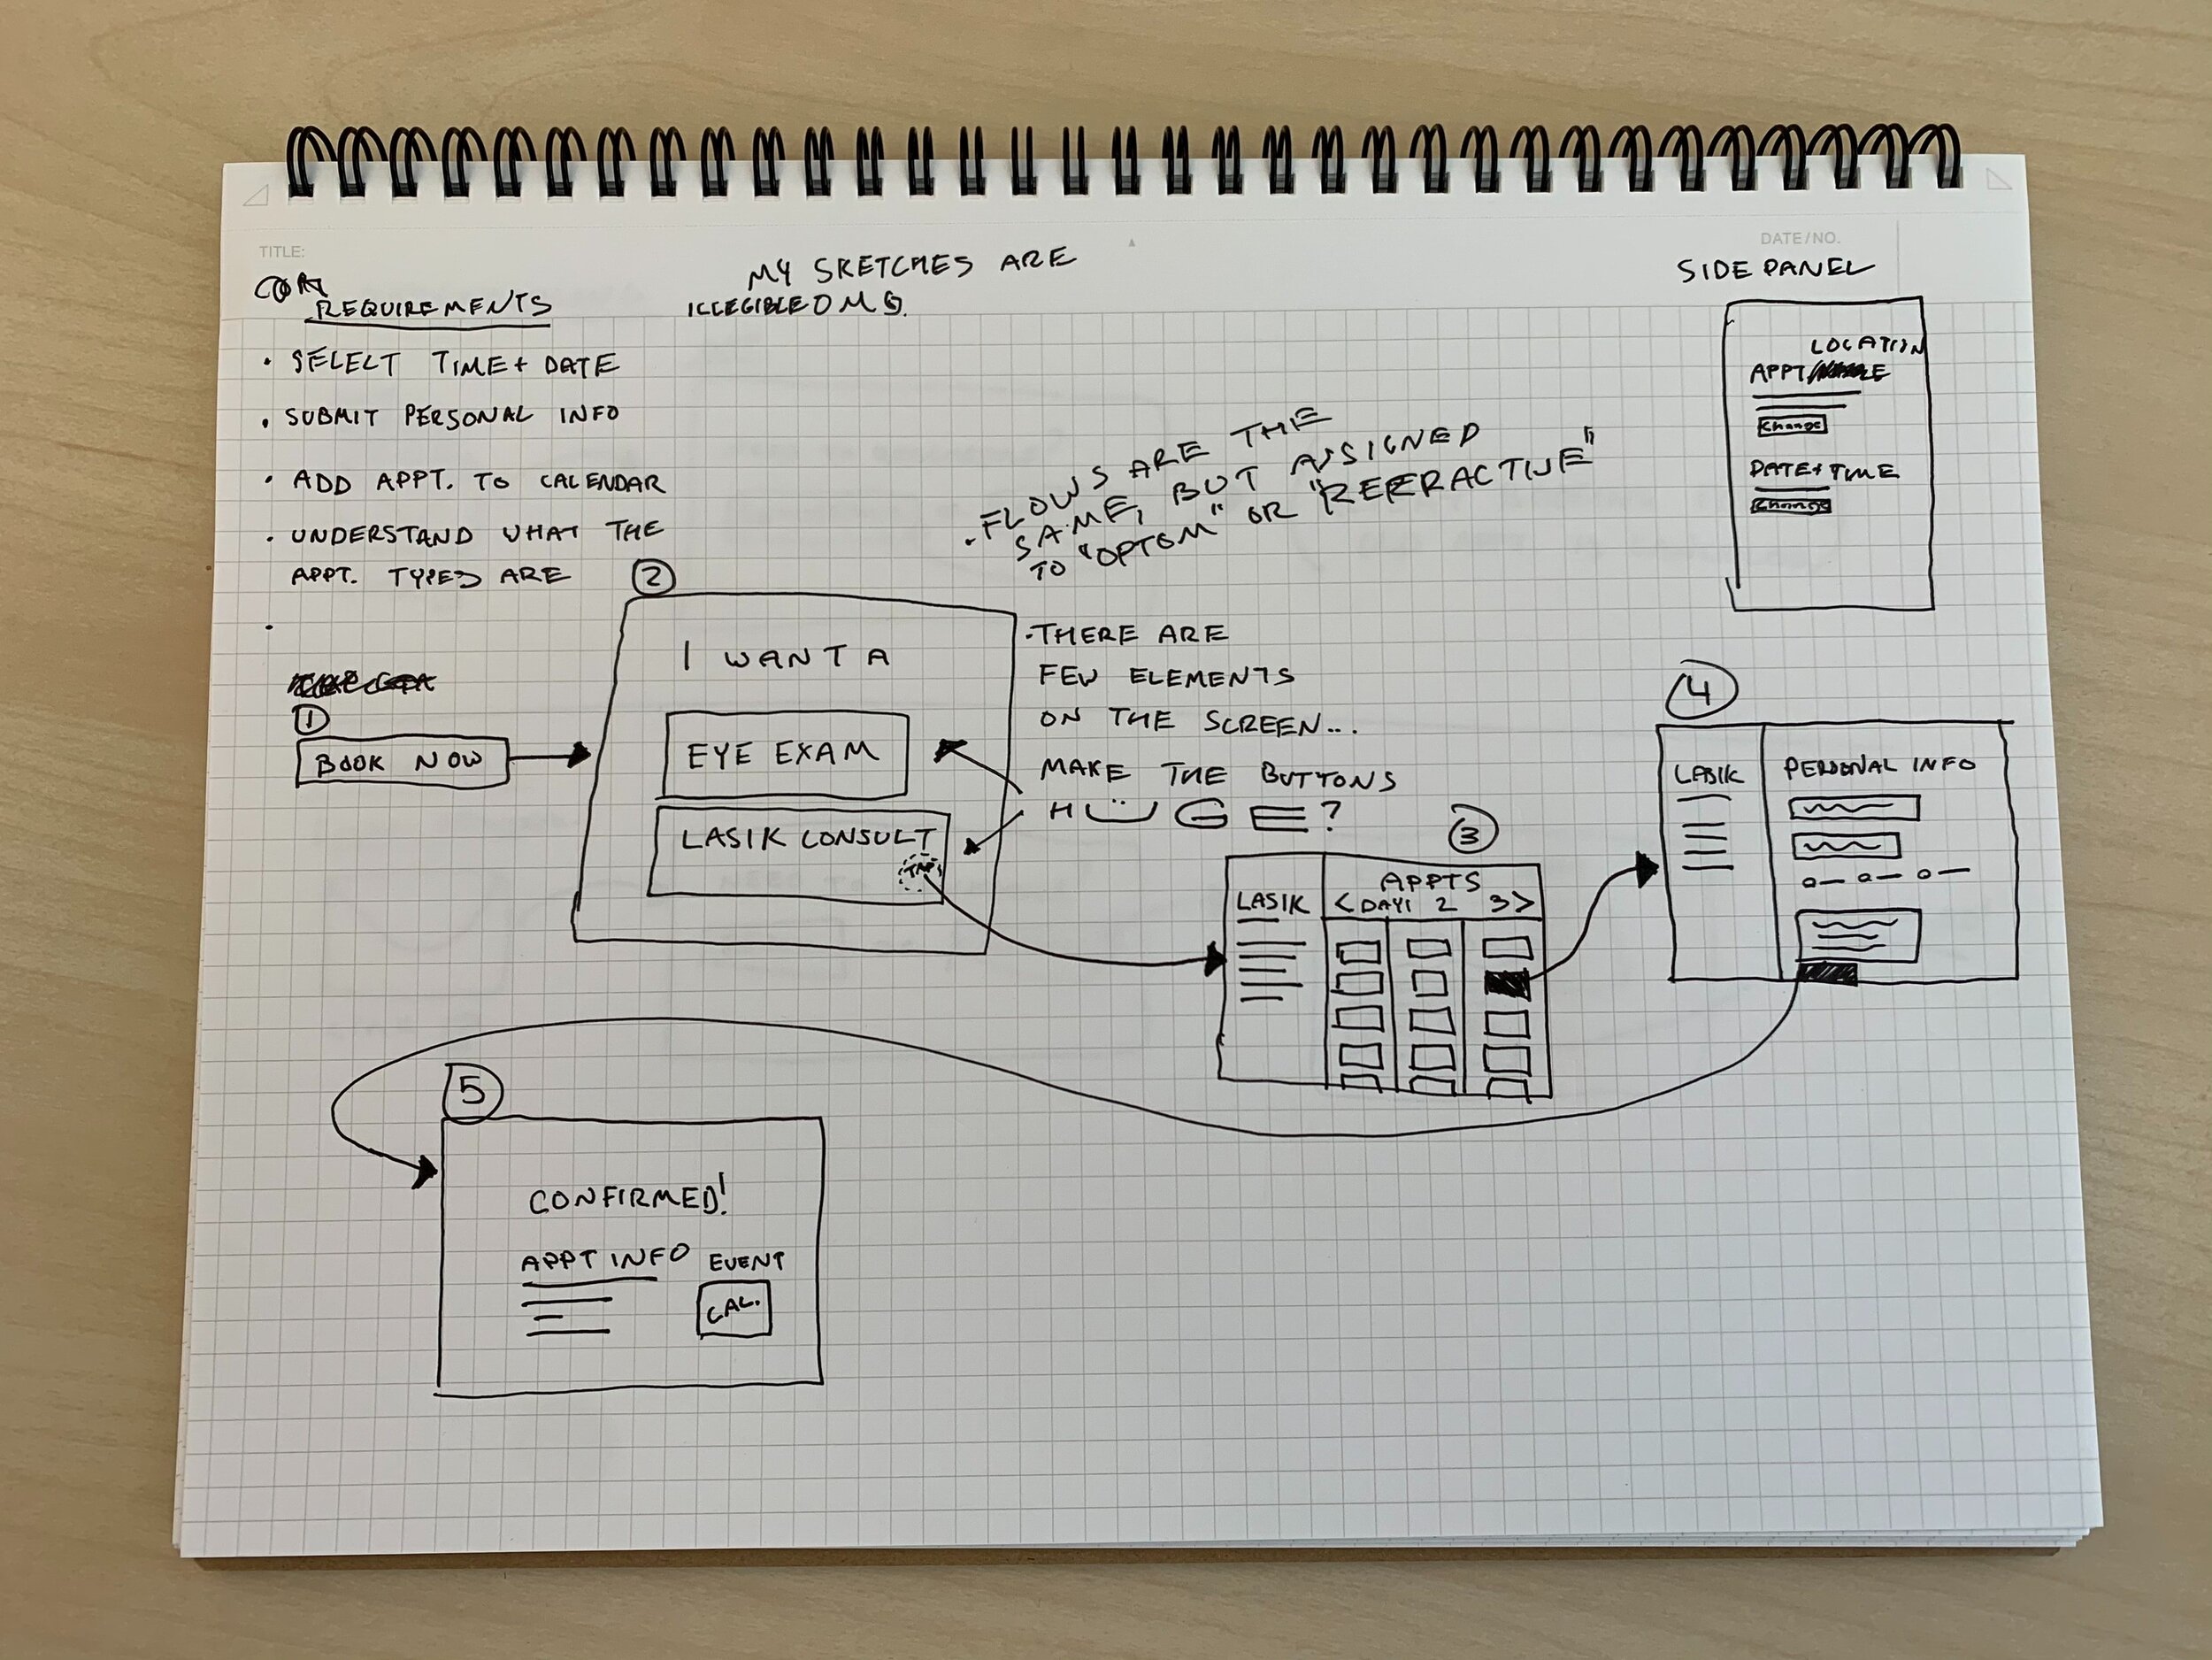 TITLE:
DATE/NO.
MY SKETCHES ARE
ILLEGIBLE OMG.
REQUIREMENTS
• SELECT TIME + DATE
• SUBMIT PERSONAL INFO
• ADD APPT. TO CALENDAR
• UNDERSTAND WHAT THE
APPT. TYPES ARE
•
SIDE PANEL
LOCATION
APPT
Change
DATE + TIME
Change
• FLOWS ARE THE
SAME, BUT ASSIGNED
TO "OPTOM" OR "REFRACTIVE"
1
BOOK NOW
2
I WANT A
EYE EXAM
LASIK CONSULT
TAP
• THERE ARE
FEW ELEMENTS
ON THE SCREEN...
MAKE THE BUTTONS
HUGE?
3
LASIK
APPTS
< DAY1 2 3 >
4
LASIK
PERSONAL INFO
5
CONFIRMED!
APPT INFO
EVENT
CAL.